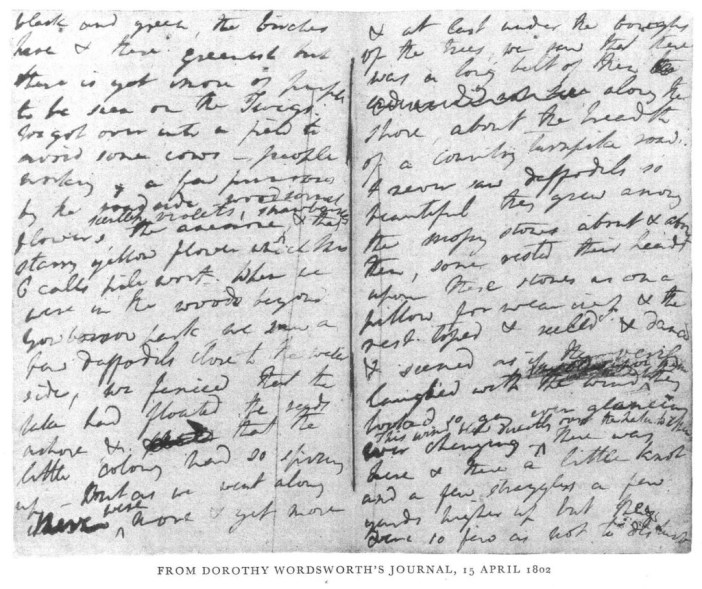 black and green, the birches
here & there greenish but
there is yet more of purple
to be seen on the Twigs.
We got over into a field to
avoid some cows — people
working, a few primroses
by the road side, wood sorrel
flowers, the anemone, scentless violets, strawberries, & that
starry yellow flower which Mrs
C calls pile wort. When we
were in the woods beyond
Gowbarrow park we saw a
few daffodils close to the water
side, we fancied that the
lake had floated the seeds
ashore & that the
little colony had so sprung
up — But as we went along
there were more & yet more
& at last under the boughs
of the trees, we saw that there
was a long belt of them
along the
shore, about the breadth
of a country turnpike road.
I never saw daffodils so
beautiful they grew among
the mossy stones about & about
them, some rested their heads
upon these stones as on a
pillow for weariness & the
rest tossed & reeled & danced
& seemed as if they verily
laughed with the wind they
looked so gay ever glancing
ever changing
This wind blew directly over the lake to them
There was
here & there a little knot
and a few stragglers a few
yards higher up but they
were so few as not to disturb
FROM DOROTHY WORDSWORTH'S JOURNAL, 15 APRIL 1802